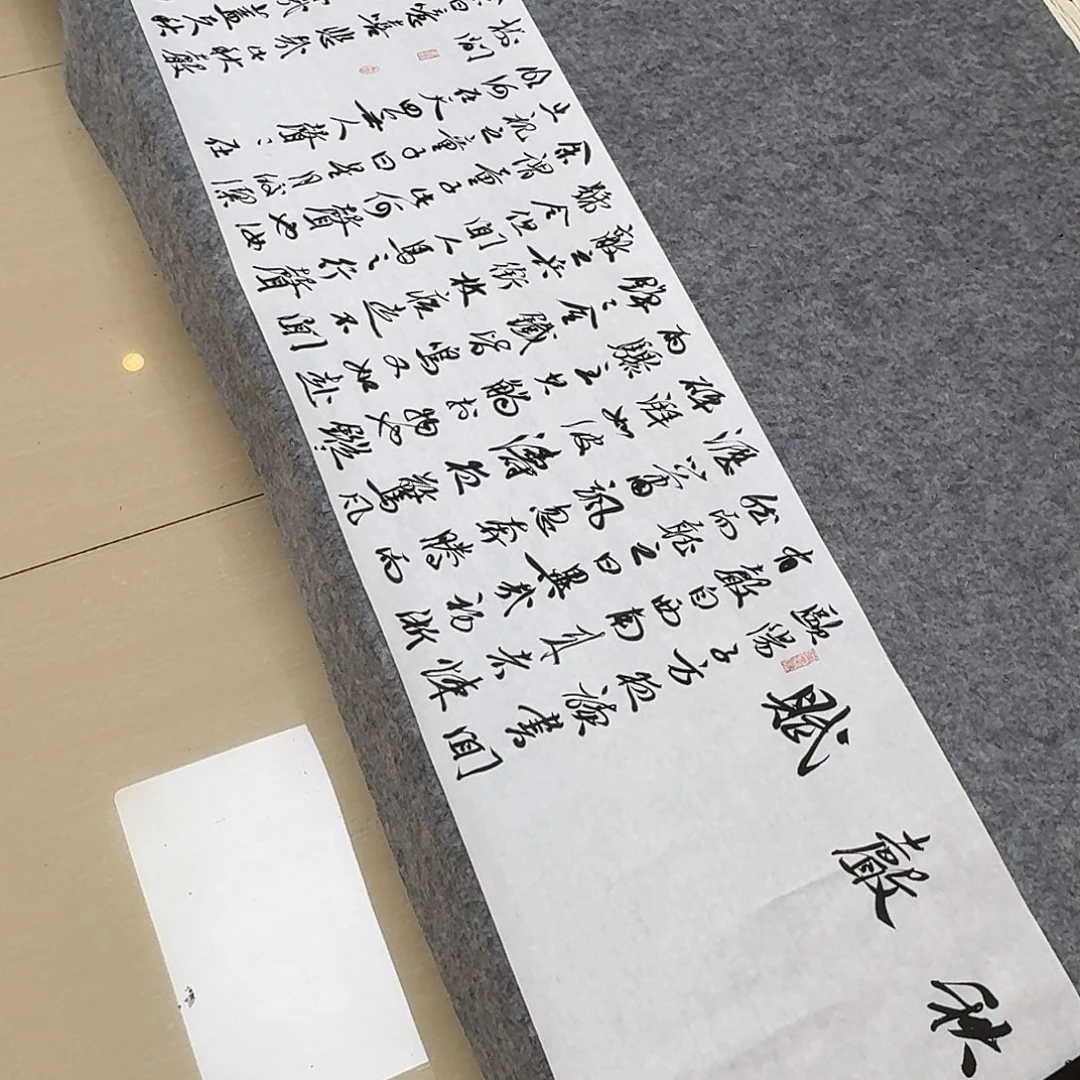 秋聲賦
歐陽子方夜讀書聞
有聲自西南來者悚
然而聽之曰異哉初淅
瀝以蕭颯忽奔騰而
砰湃如波濤夜驚風
雨驟至其觸於物也鏦〻
錚〻金鐵皆鳴又如赴
敵之兵銜枚疾走不聞
號令但聞人馬之行聲
余謂童子此何聲也汝
出視之童子曰星月皎潔
明河在天四無人聲〻在
樹間
曰噫嘻悲哉此秋聲
哉蓋夫秋